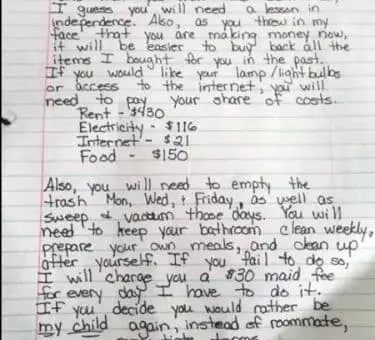 I guess you will need a lesson in
independence. Also, as you threw in my
face that you are making money now,
it will be easier to buy back all the
items I bought for you in the past.
If you would like your lamp/lightbulbs
or access to the internet, you will
need to pay your share of costs.
Rent - $430
Electricity - $116
Internet - $21
Food - $150
Also, you will need to empty the
trash Mon, Wed, & Friday, as well as
sweep & vacuum those days. You will
need to keep your bathroom clean weekly,
prepare your own meals, and clean up
after yourself. If you fail to do so,
I will charge you a $30 maid fee
for every day I have to do it.
If you decide you would rather be
my child again, instead of roommate,